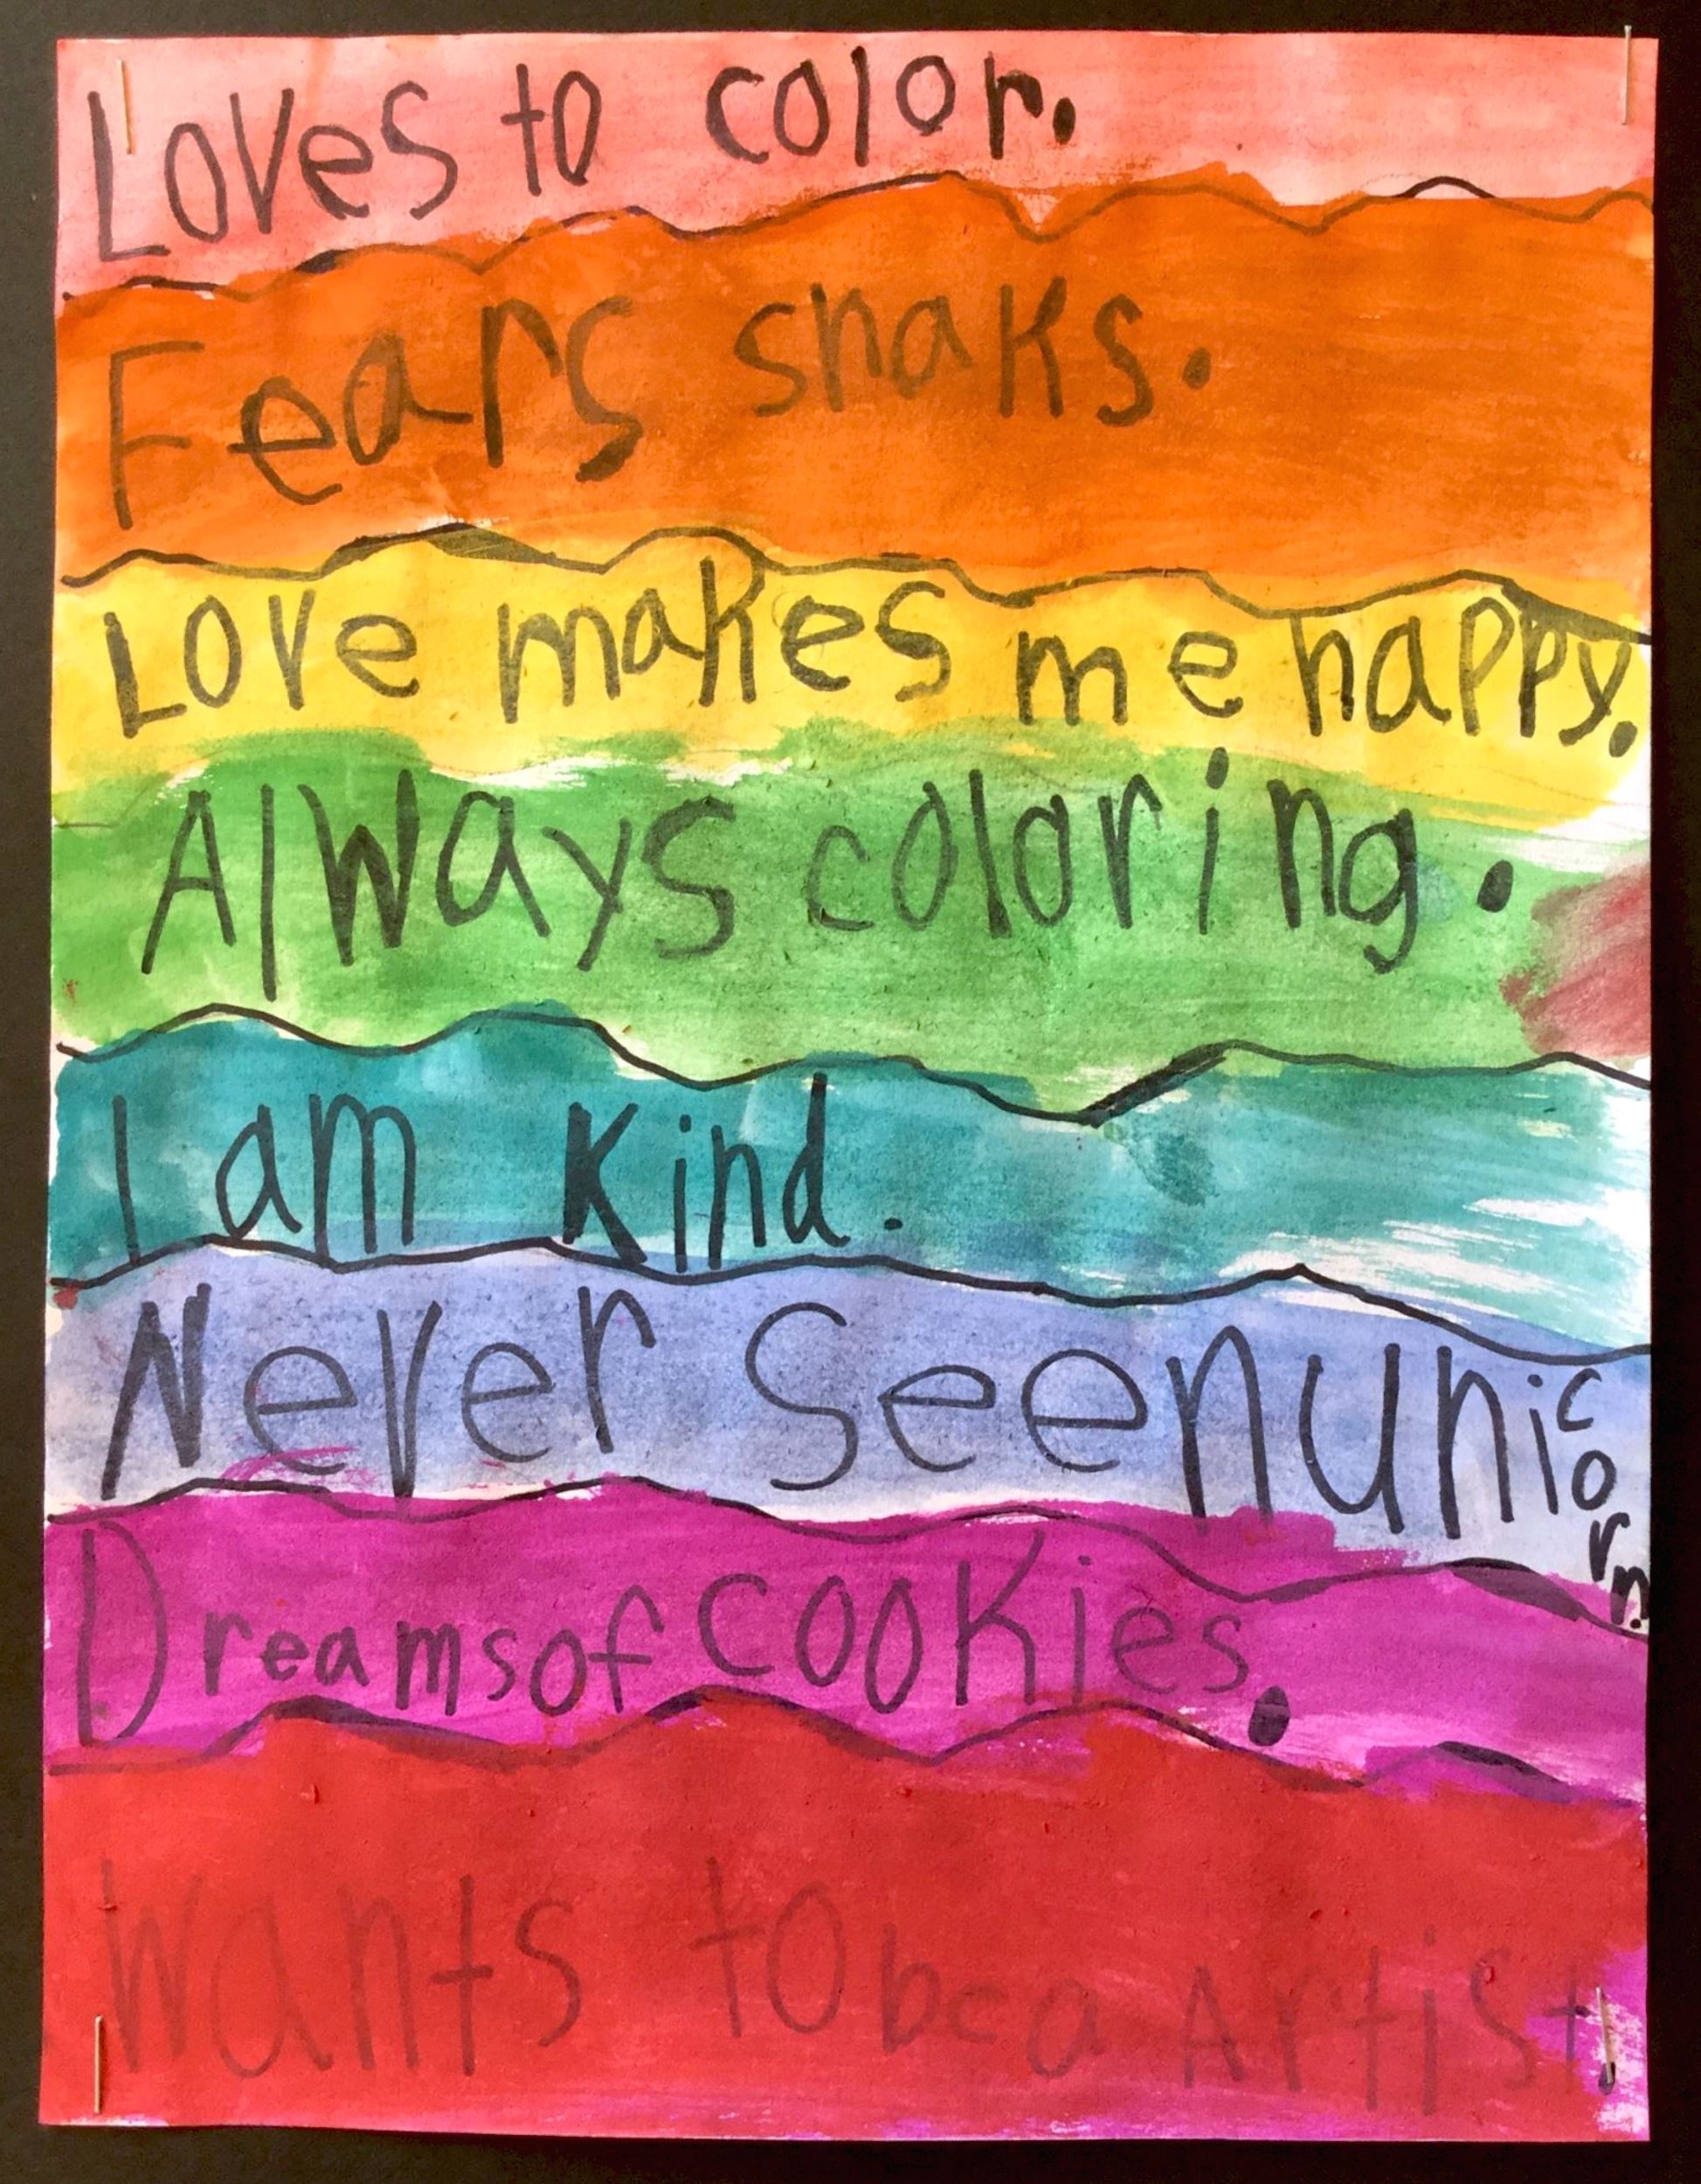 Loves to color.
Fears snaks.
Love makes me happy.
Always coloring.
I am Kind.
Never Seen unicorn.
Dreams of cookies.
Wants to be a Artist.